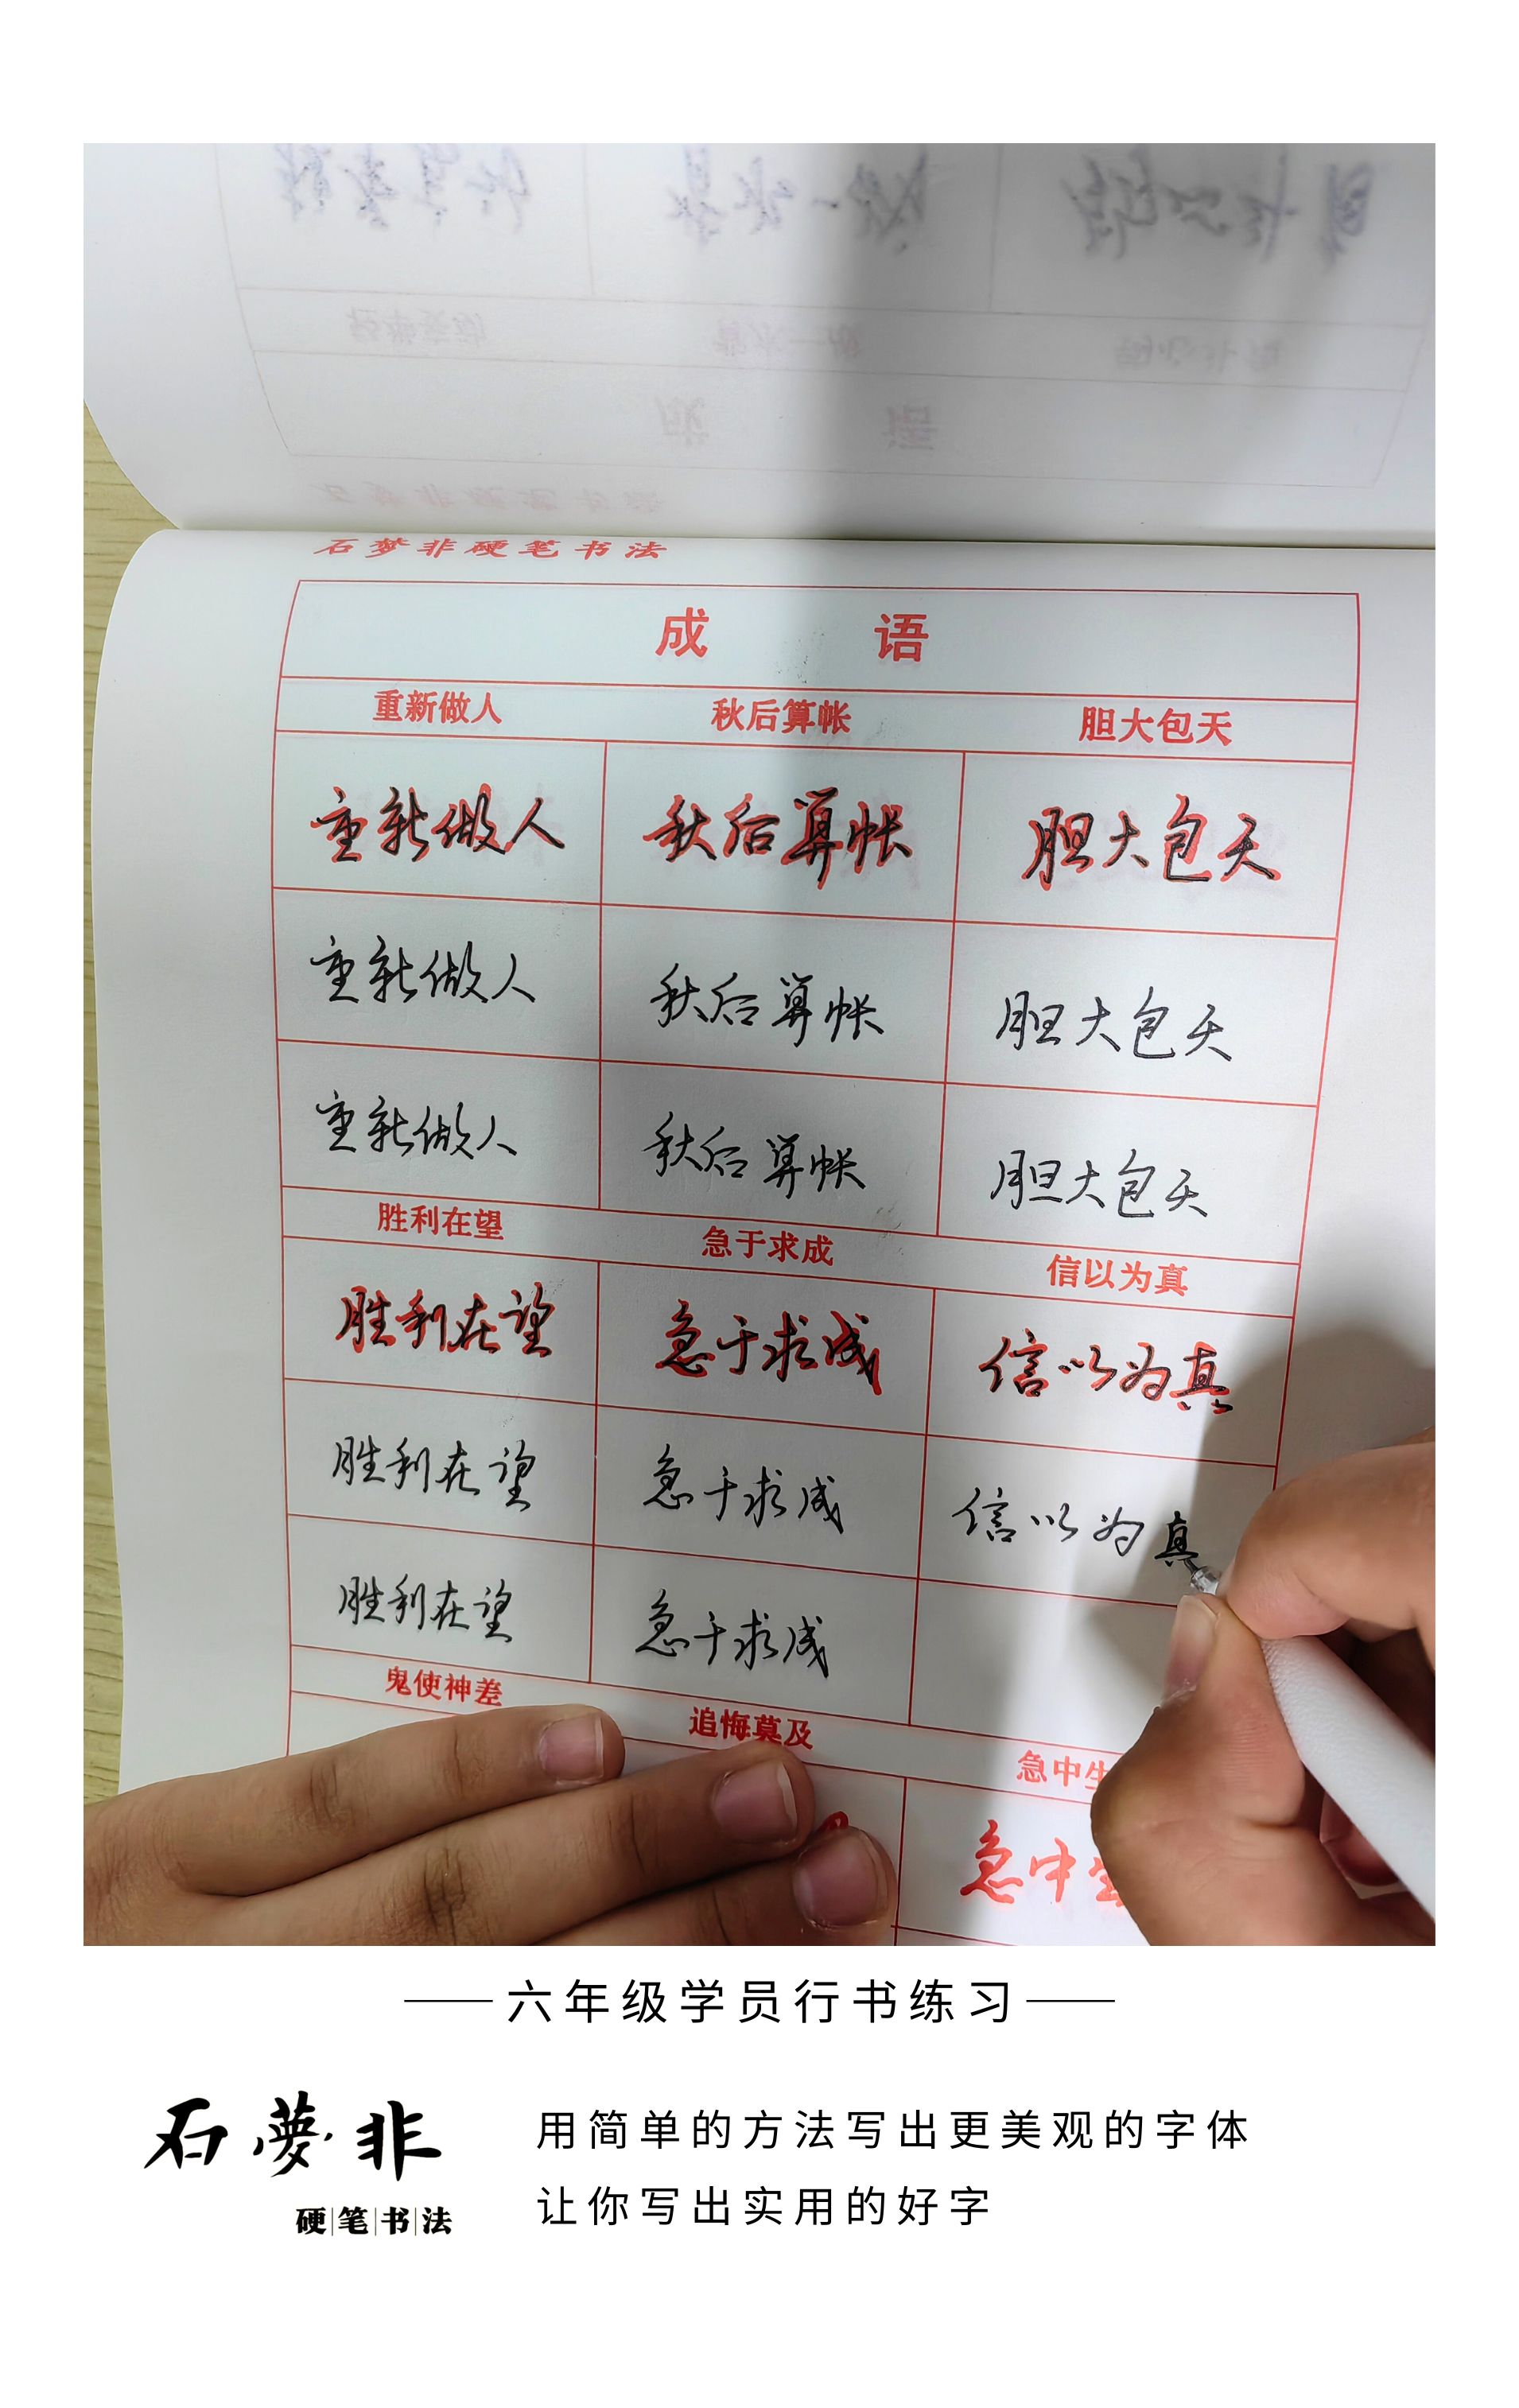 石梦非硬笔书法
成 语
重新做人 秋后算帐 胆大包天
重新做人 秋后算帐 胆大包天
重新做人 秋后算帐 胆大包天
重新做人 秋后算帐 胆大包天
胜利在望 急于求成 信以为真
胜利在望 急于求成 信以为真
胜利在望 急于求成 信以为真
胜利在望 急于求成
鬼使神差 追悔莫及 急中生
急中生
六年级学员行书练习
石夢非
硬笔书法
用简单的方法写出更美观的字体
让你写出实用的好字